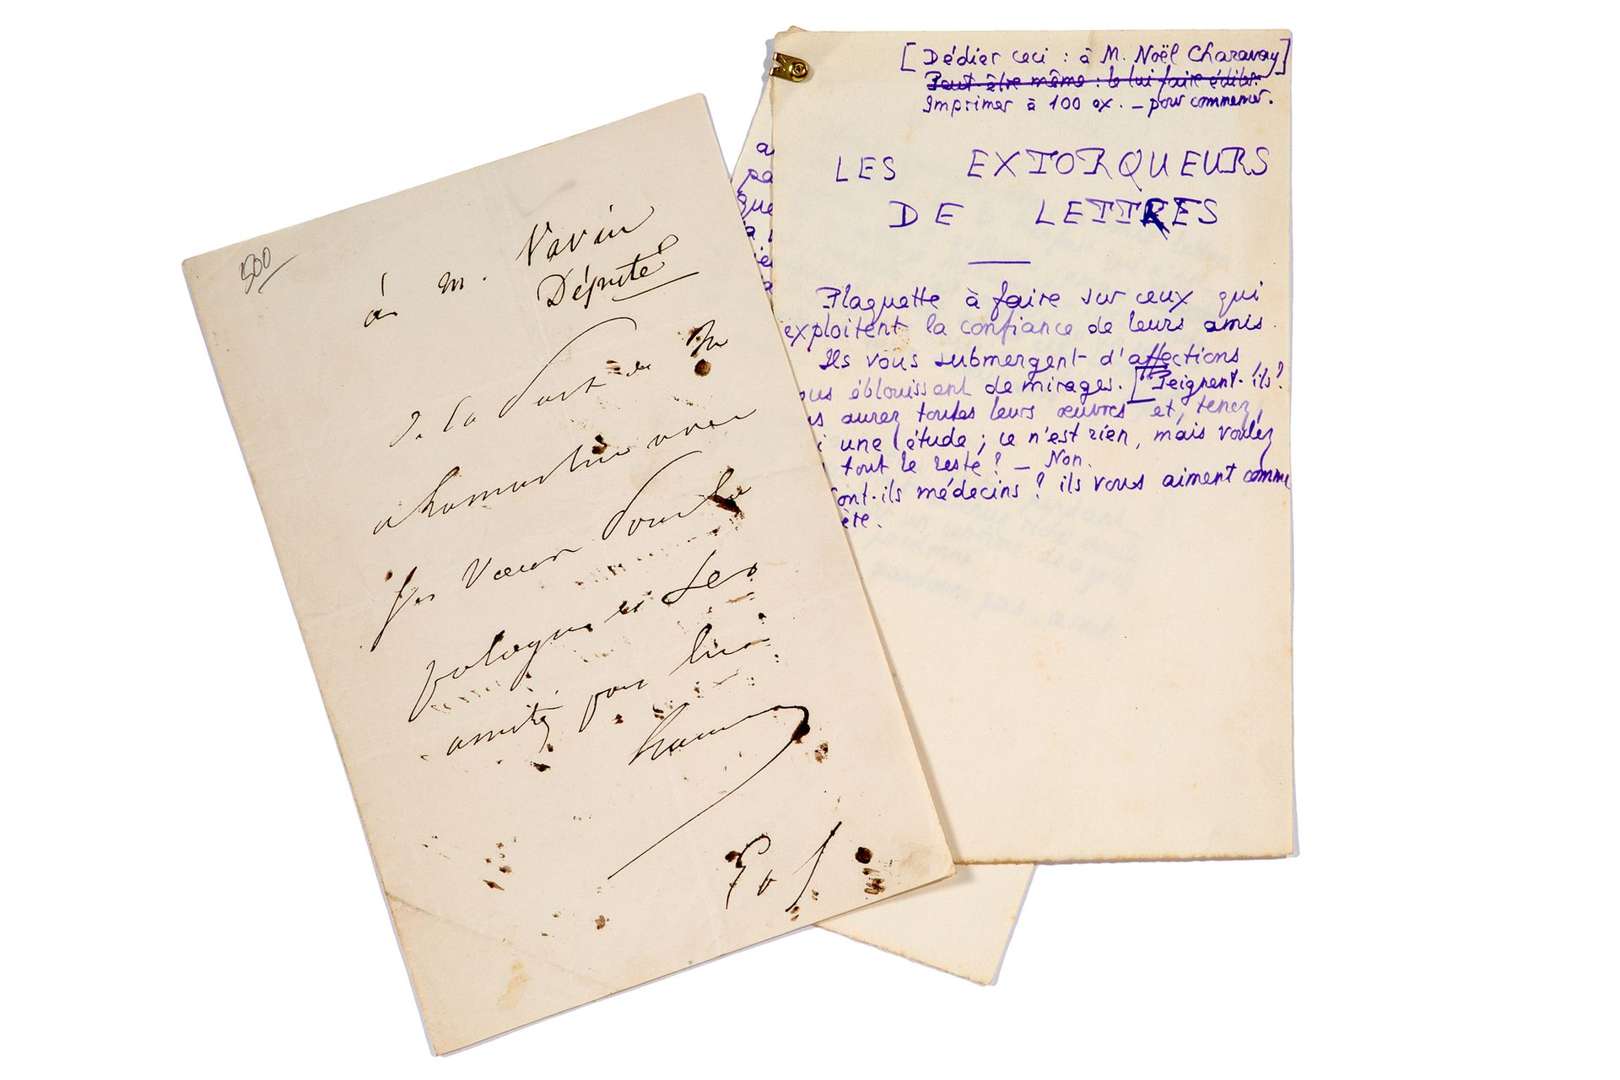 500
à M. Vavin
Député
de la Part de M
a Lamartine avec
ses Vœux Pour la
pologne et ses
amitiés pour lui
[Dédier ceci : à M. Noël Charavay]
Peut-être même : le lui faire éditer.
Imprimer à 100 ex. – pour commencer.
LES EXTORQUEURS
DE LETTRES
Plaquette à faire sur ceux qui
exploitent la confiance de leurs amis.
Ils vous submergent d'affections
ous éblouissent de mirages. [Peignent-ils?
us aurez toutes leurs œuvres et, tenez,
i une étude ; ce n'est rien, mais voulez
tout le reste ? – Non.
Sont-ils médecins ? ils vous aiment comme
ète.